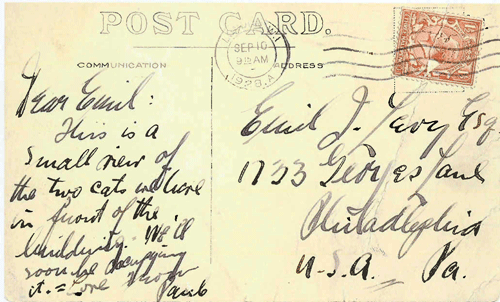 POST CARD.
SEP 10
9 15 AM
1928. A
COMMUNICATION
ADDRESS
Dear Emil:
This is a
small view of
the two cats we have
in front of the
building. We'll
soon be occupying
it. = Love from
Emil J. Levy Esq
1733 Georges Lane
Philadelphia
U.S.A. Pa.